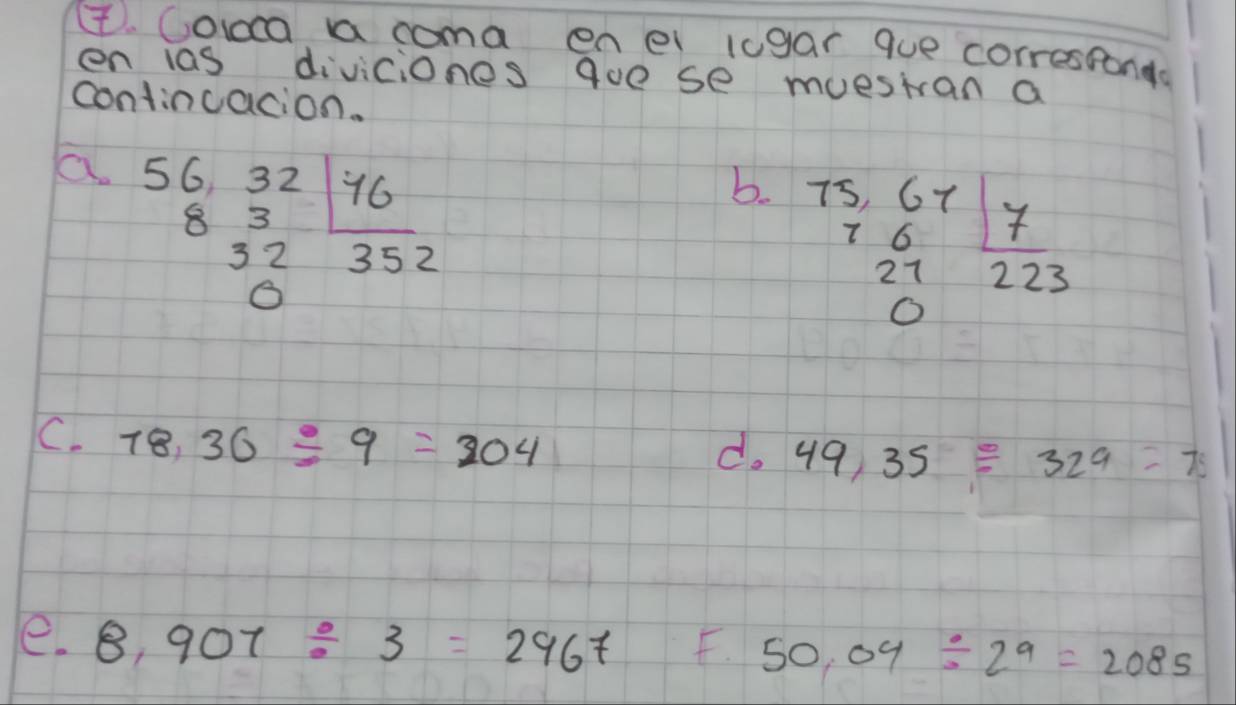 7. Coloca la coma en el lugar que corresponda
en las diviciones que se muestran a
continuacion.
a. 56,32 | 16
8 3
32 352
0
b. 15,61 | 7
1 6
21 223
0
c. 18,36 ÷ 9 = 204
d. 49,35 ÷ 329 =
e. 8,901 ÷ 3 = 2967
F. 50,04 ÷ 29 = 2085